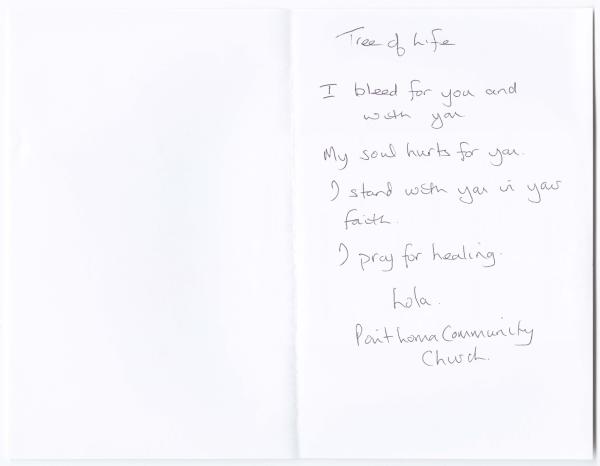 Tree of Life
I bleed for you and
with you
My soul hurts for you.
I stand with you in your
faith.
I pray for healing.
Lola.
Community
Church.